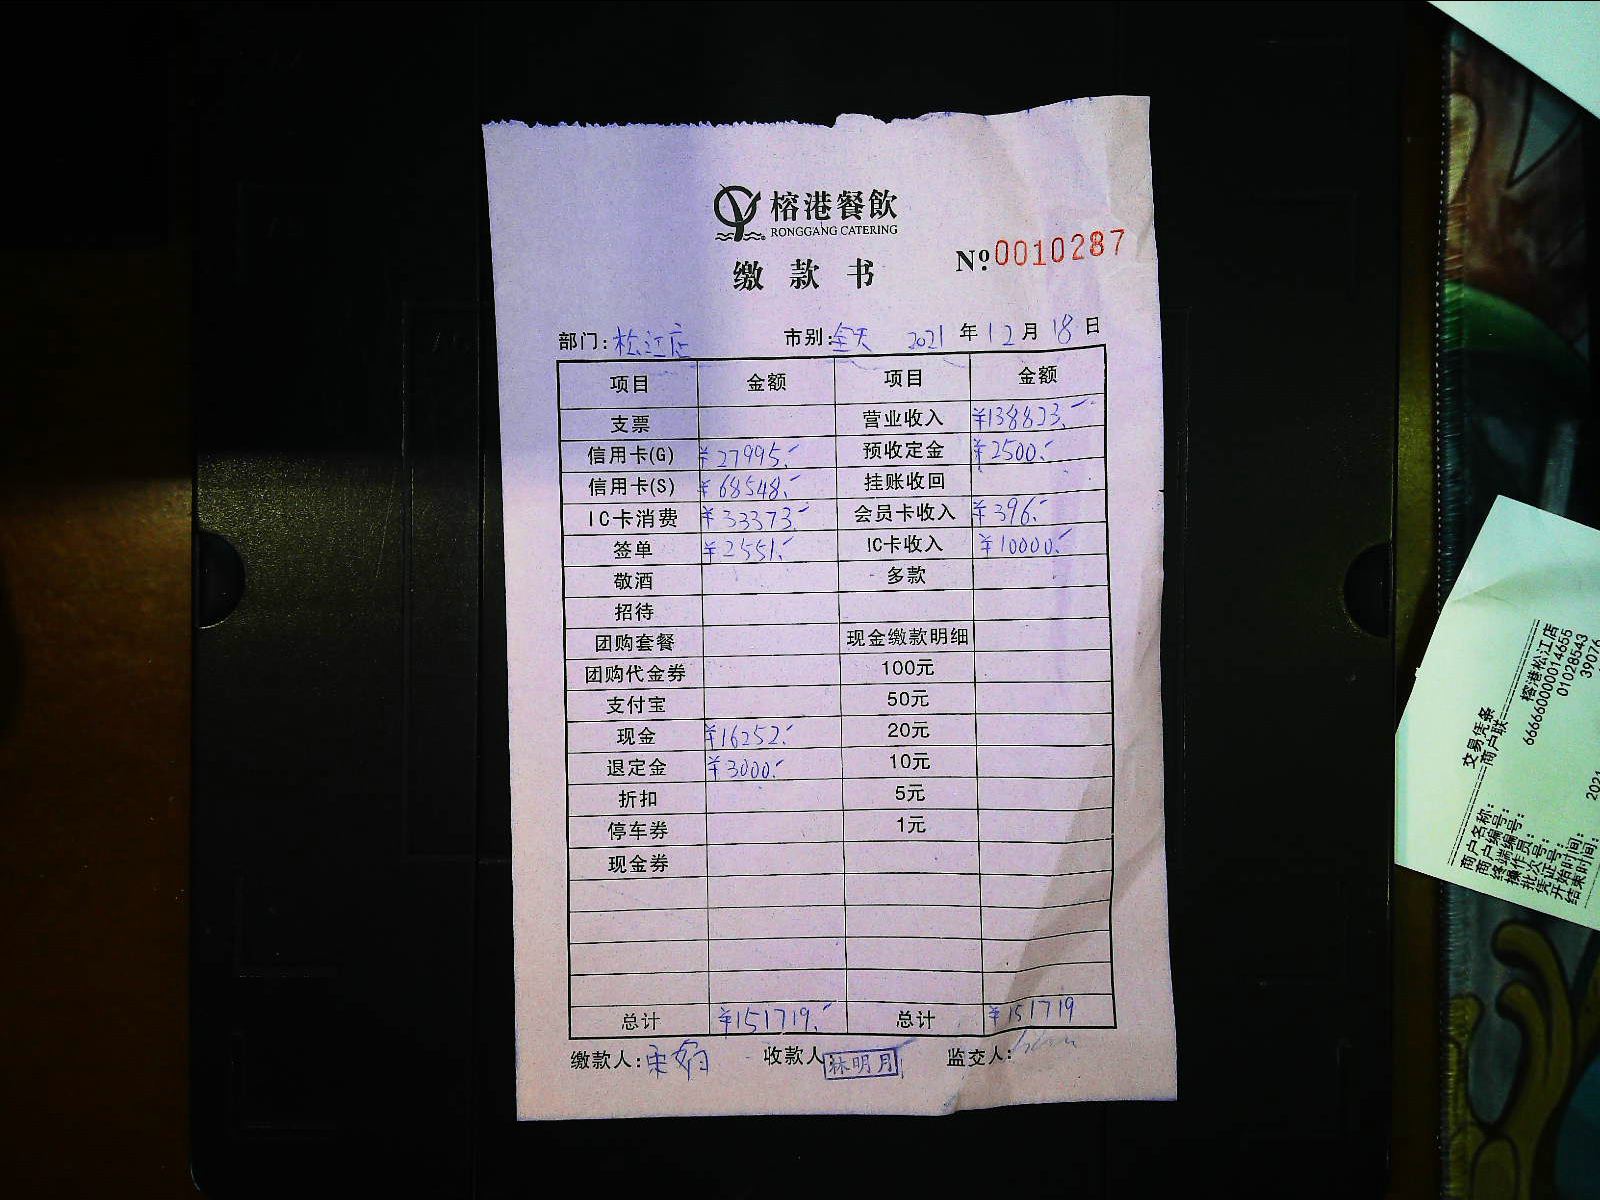 榕港餐飲
RONGGANG CATERING
缴款书
№ 0010287
部门：松江店 市别：全天 2021年12月18日
项目 金额 项目 金额
支票 营业收入 ¥138823.-
信用卡(G) ¥27995.- 预收定金 ¥2500.-
信用卡(S) ¥68548.- 挂账收回
IC卡消费 ¥33373.- 会员卡收入 ¥396.-
签单 ¥2551.- IC卡收入 ¥10000.-
敬酒 多款
招待
团购套餐 现金缴款明细
团购代金券 100元
支付宝 50元
现金 ¥16252.- 20元
退定金 ¥3000.- 10元
折扣 5元
停车券 1元
现金券
总计 ¥151719.- 总计 ¥151719
缴款人： 收款人： 林明月 监交人：
交易凭条
商户联
商户名称： 榕港松江店
商户编号： 666660000014655
终端编号： 01028543
操作员号： 39076
批次号：
凭证号：
开始时间： 2021
结束时间：